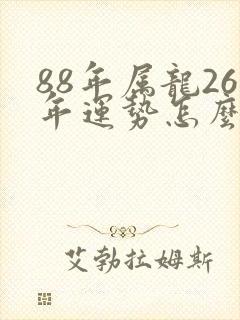 88年属龍26
年運势怎麼
艾勃拉姆斯